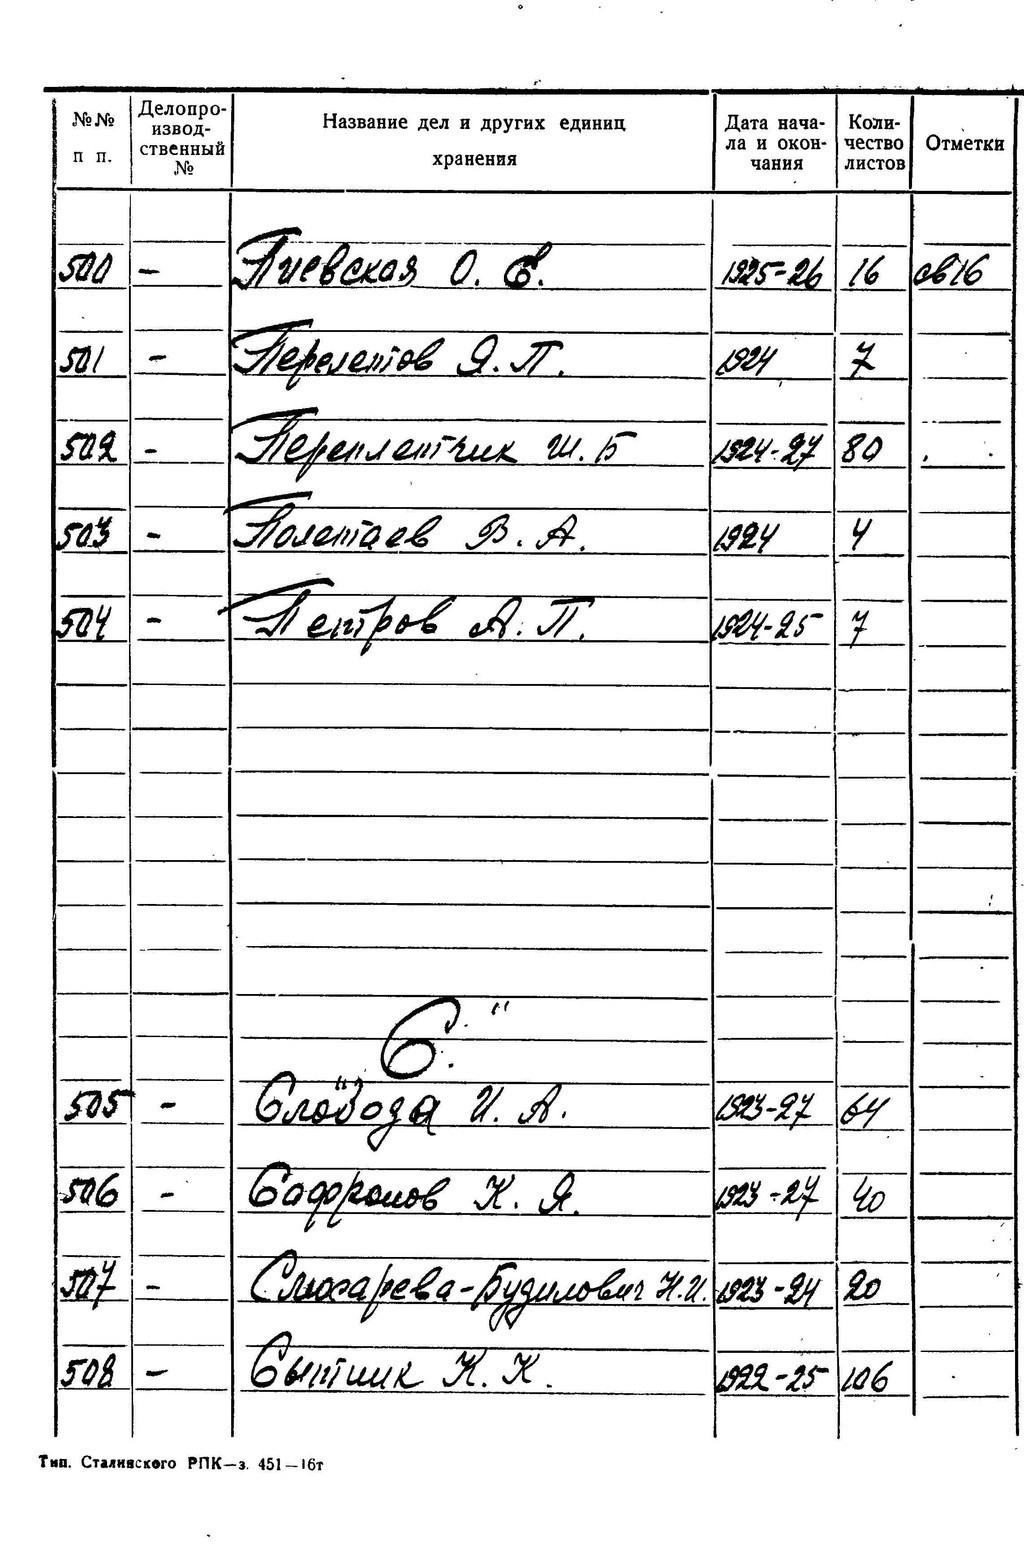 №№ п п. Делопроизводственный № Название дел и других единиц хранения Дата начала и окончания Количество листов Отметки
500 – Пиевская О. Е. 1925-26 16 св 16
501 – Перелетов Я. П. 1924 7
502 – Переплетчик Ш. Б 1924-27 80
503 – Полетаев В. А. 1924 4
504 – Петров А. П. 1924-25 7
"С."
505 – Слобода И. А. 1923-27 64
506 – Сафронов К. Я. 1923-27 40
507 – Слюсарева-Будилович Н.И. 1923-24 20
508 – Сытник К. К. 1922-25 106
Тип. Сталинского РПК—з. 451—16т